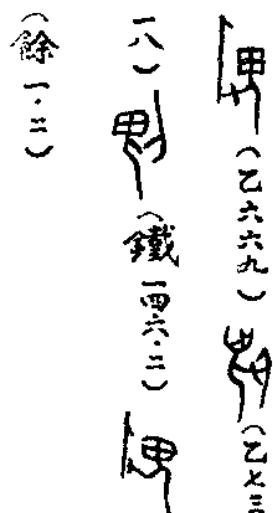 （乙六六九）（乙七三
一八）（鐵一四六·二）
（餘一·二）